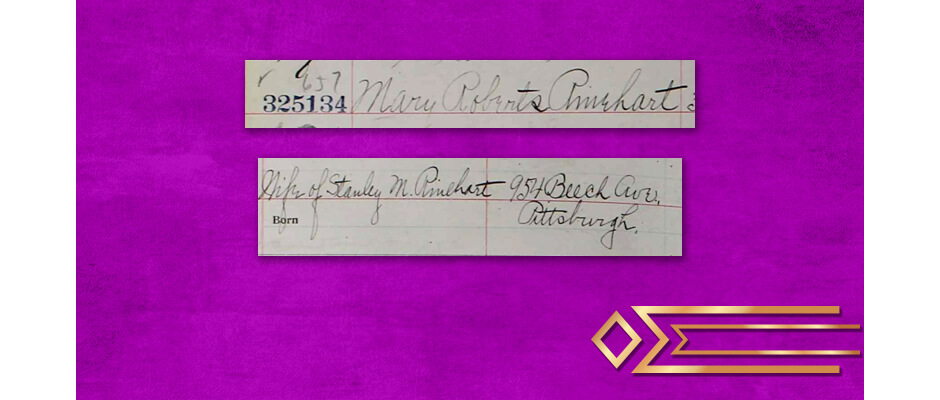 657
325134 Mary Roberts Rinehart 3
Wife of Stanley M. Rinehart 954 Beech Ave,
Born Pittsburgh.